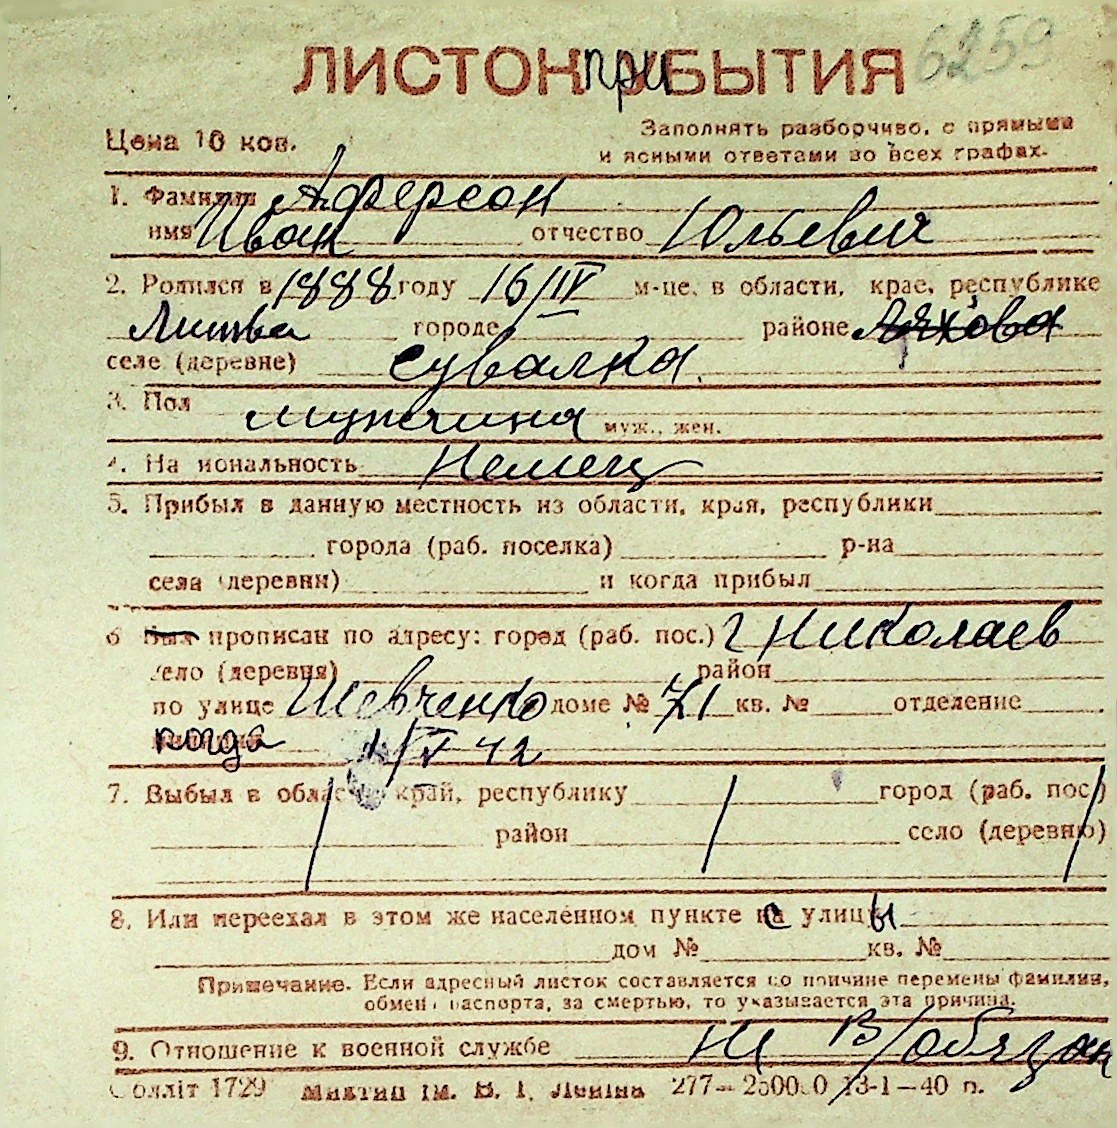 6259
ЛИСТОК ПРИБЫТИЯ
Цена 10 коп.
Заполнять разборчиво, с прямыми
и ясными ответами во всех графах.
1. Фамилия Аферсон
имя Иван отчество Юльевич
2. Родился в 1888 году 16/IV м-це, в области, крае, республике
Литва городе районе
селе (деревне) Сувалка.
3. Пол мужчина муж., жен.
4. Национальность Немец
5. Прибыл в данную местность из области, края, республики
города (раб. поселка) р-на
села (деревни) и когда прибыл
6 Был прописан по адресу: город (раб. пос.) г Николаев
село (деревня) район
по улице Шевченко доме № 71 кв. № отделение
когда 1/V 42
7. Выбыл в область, край, республику город (раб. пос.)
район село (деревню)
8. Или переехал в этом же населенном пункте с улицы
дом № кв. №
Примечание. Если адресный листок составляется по причине перемены фамилии,
обмена паспорта, за смертью, то указывается эта причина.
9. Отношение к военной службе В/обязан
Солліт 1729 ім. В. І. Леніна 277— 13-1—40 п.